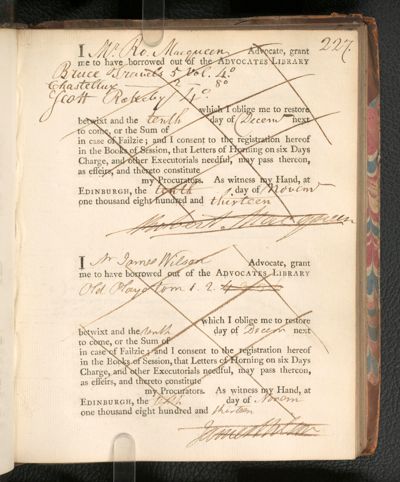 227
I Mr Ro. Macqueen Advocate, grant
me to have borrowed out of the ADVOCATES LIBRARY
Bruce Travels 5 vol. 4o
Chastellux 2 8o
Scott Rokeby 4o
which I oblige me to restore
betwixt and the tenth day of Decemr next
to come, or the Sum of
in case of Failzie; and I consent to the registration hereof
in the Books of Session, that Letters of Horning on six Days
Charge, and other Executorials needful, may pass thereon,
as effeirs, and thereto constitute
my Procurators. As witness my Hand, at
EDINBURGH, the tenth day of Novemr
one thousand eight hundred and thirteen
Robert Macqueen
I Mr James Wilson Advocate, grant
me to have borrowed out of the ADVOCATES LIBRARY
Old Plays tom 1. 2.
which I oblige me to restore
betwixt and the tenth day of Decem next
to come, or the Sum of
in case of Failzie; and I consent to the registration hereof
in the Books of Session, that Letters of Horning on six Days
Charge, and other Executorials needful, may pass thereon,
as effeirs, and thereto constitute
my Procurators. As witness my Hand, at
EDINBURGH, the day of Novem
one thousand eight hundred and thirteen
James Wilson